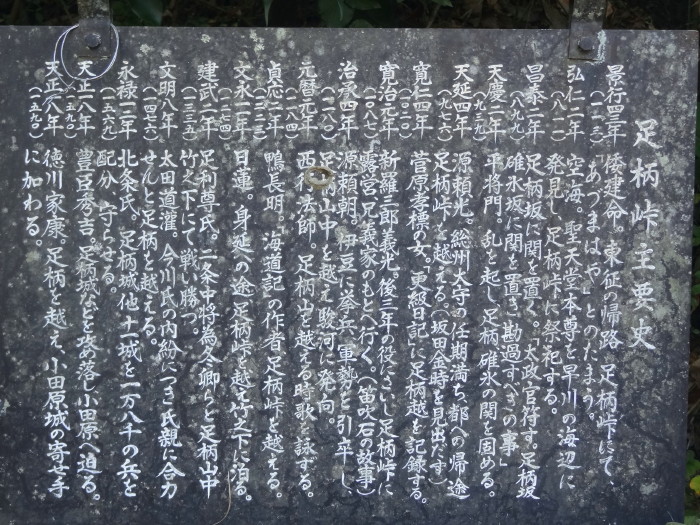 足柄峠主要史
景行四三年
(一一三)
倭建命。東征の帰路、足柄峠にて、
「あづまはや」とのたまう。
弘仁二年
(八一一)
空海。聖天堂本尊を早川の海辺に
発見し、足柄峠に祭祀する。
昌泰二年
(八九九)
足柄坂に関を置く。「太政官符す。足柄坂
碓氷坂に関を置き、勘過すべきの事」
天慶二年
(九三九)
平将門。乱を起し足柄碓氷の関を固める。
天延四年
(九七六)
源頼光。総州大守の任期満ち、都への帰途
足柄峠を越える。(坂田金時を見出だす)
寛仁四年
(一〇二〇)
菅原孝標の女。「更級日記」に足柄越を記録する。
寛治元年
(一〇八七)
新羅三郎義光。後三年の役にさいし足柄峠に
露宮、兄義家のもとへ行く。(笛吹石の故事)
治承四年
(一一八〇)
源頼朝。伊豆に挙兵、軍勢を引率し、
足柄山中を越え駿河に発向。
元暦元年
西行法師。足柄山を越える時歌を詠ずる。
貞応二年
(一二二三)
鴨長明。「海道記」の作者足柄峠を越える。
文永一一年
(一二七四)
日蓮。身延への途、足柄峠を越え竹之下に泊る。
建武二年
(一三三五)
足利尊氏。二条中将為冬卿らと足柄山中
竹之下にて戦い勝つ。
文明八年
(一四七六)
太田道灌。今川氏の内紛につき、氏親に合力
せんと足柄を越える。
永禄一二年
(一五六九)
北条氏。足柄城他十一城を一万八千の兵を
配分、守らせる。
天正一八年
(一五九〇)
豊臣秀吉。足柄城などを攻め落し小田原へ迫る。
天正一八年
(一五九〇)
徳川家康。足柄を越え、小田原城の寄せ手
に加わる。